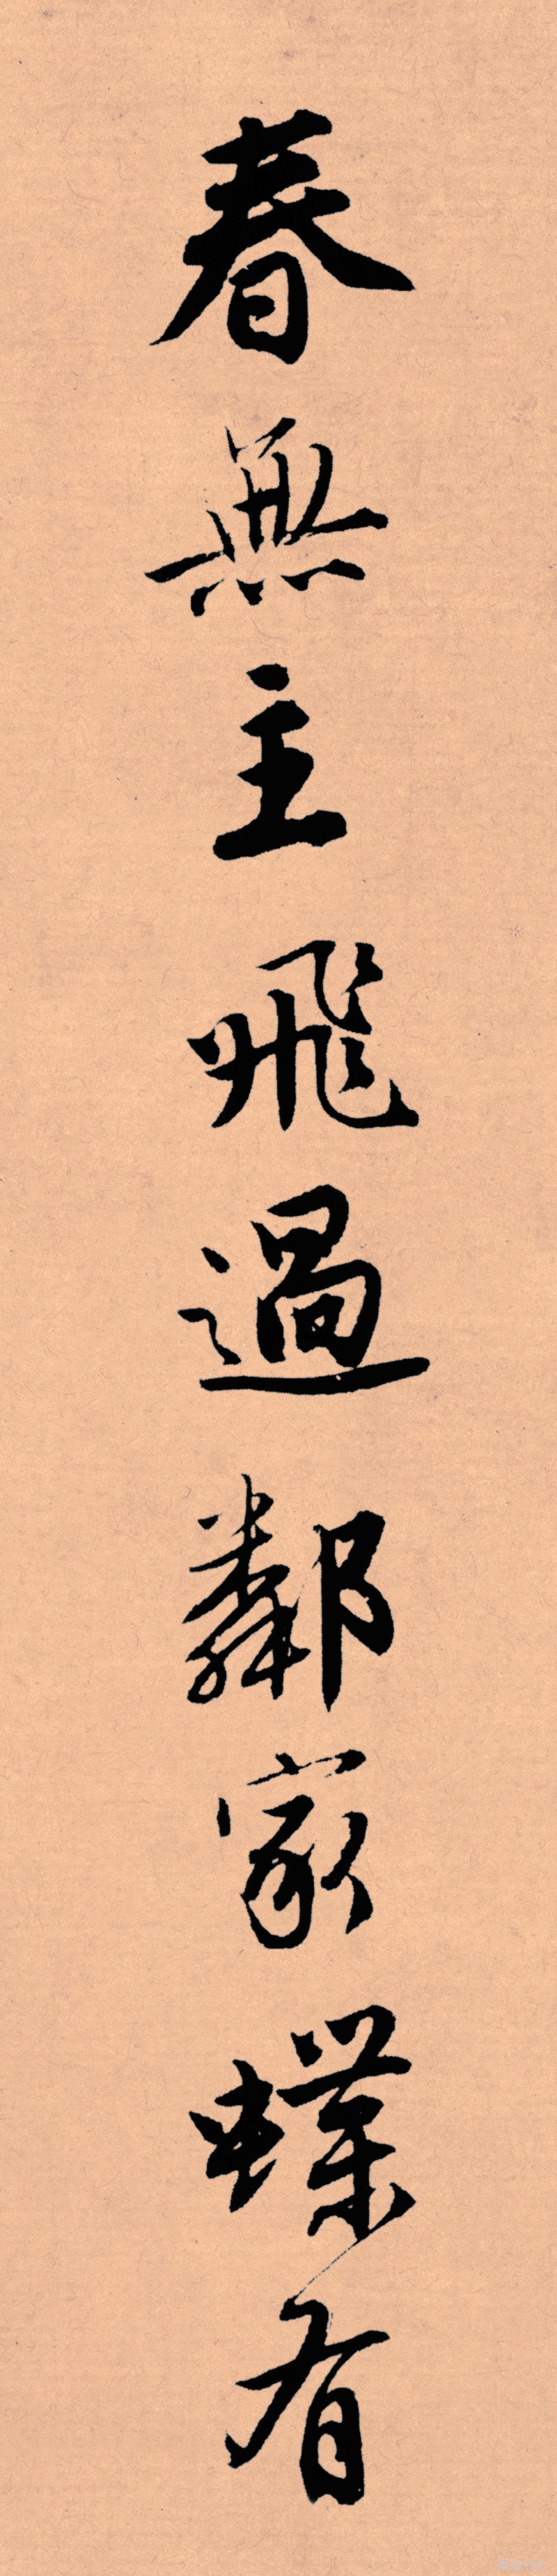 春無主飛過鄰家蝶有